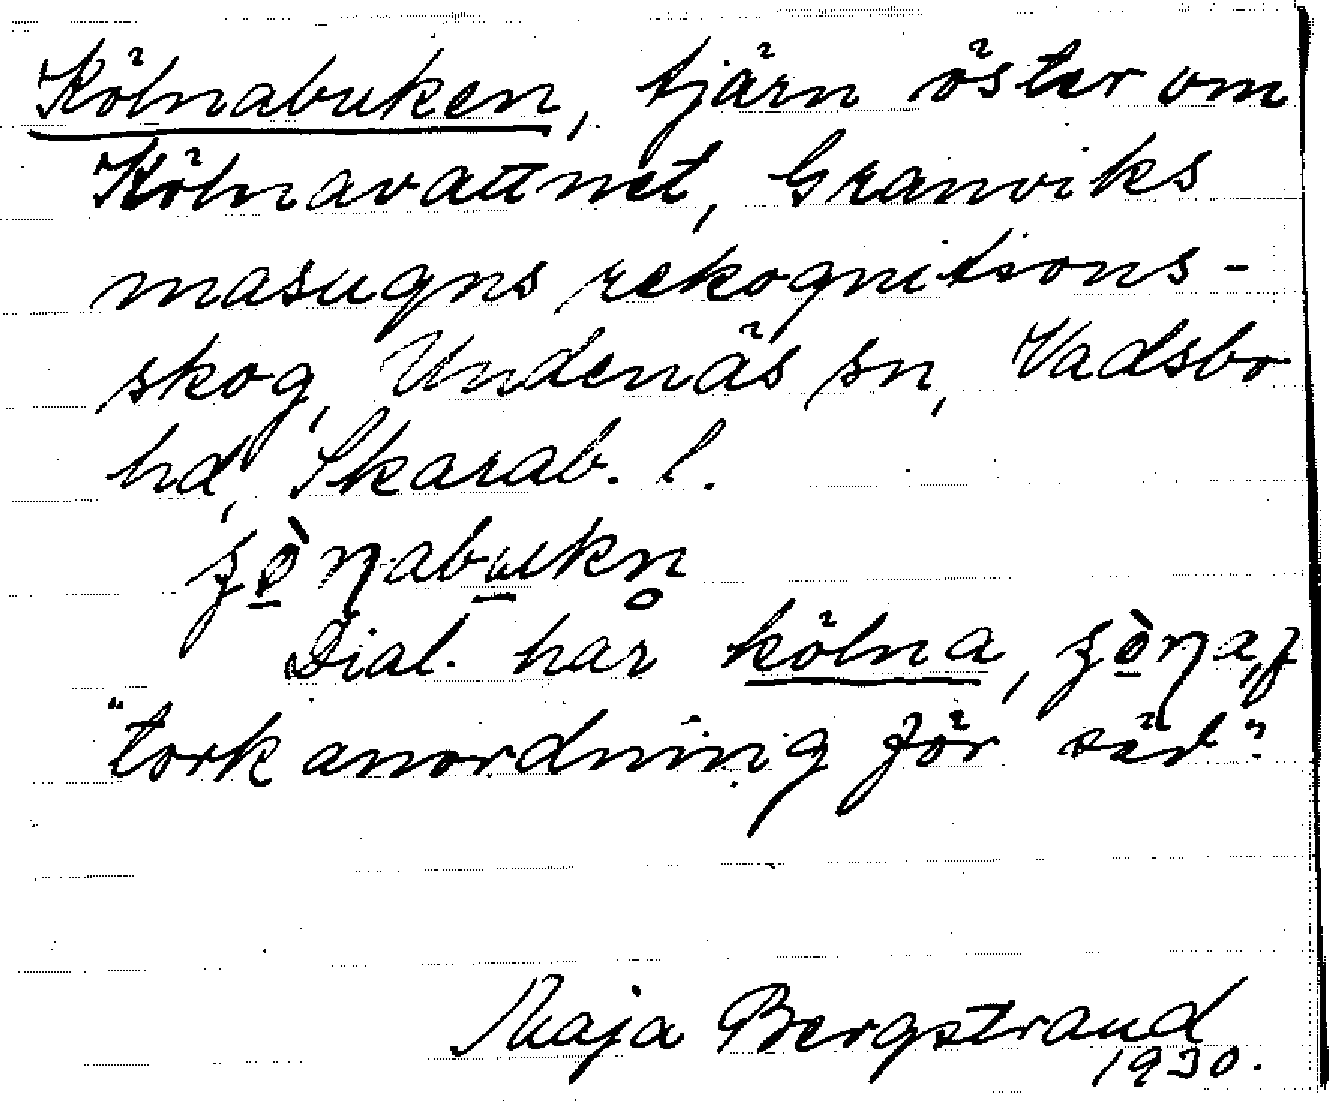 Kölnabuken, tjärn öster om
Kölnavattnet, Granviks
masugns rekognitions-
skog, Undenäs sn, Vadsbo
hd, Skarab. l.
Dial. har kölna,
"torkanordning för säd".
Maja Bergstrand
1930.